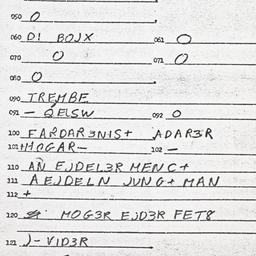 050 0
060 D! BOJX 061 0
070 0 071 0
080 0
090 TREMBE
091 — QELSW 092 0
100 FARDAR3NIS+ ADAR3R
101 HMOGAR— 102 —
110 AN EJDEL3R MENC+
111 AEJDELN JUNG+ MAN
112 +
120 MOG3R EJD3R FET8
121 J-VID3R